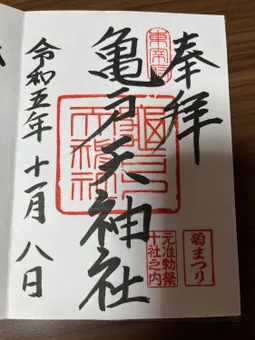 奉拝
東宰府
菊まつり
亀戸天神社
元准勅祭
十社之内
令和五年十一月八日